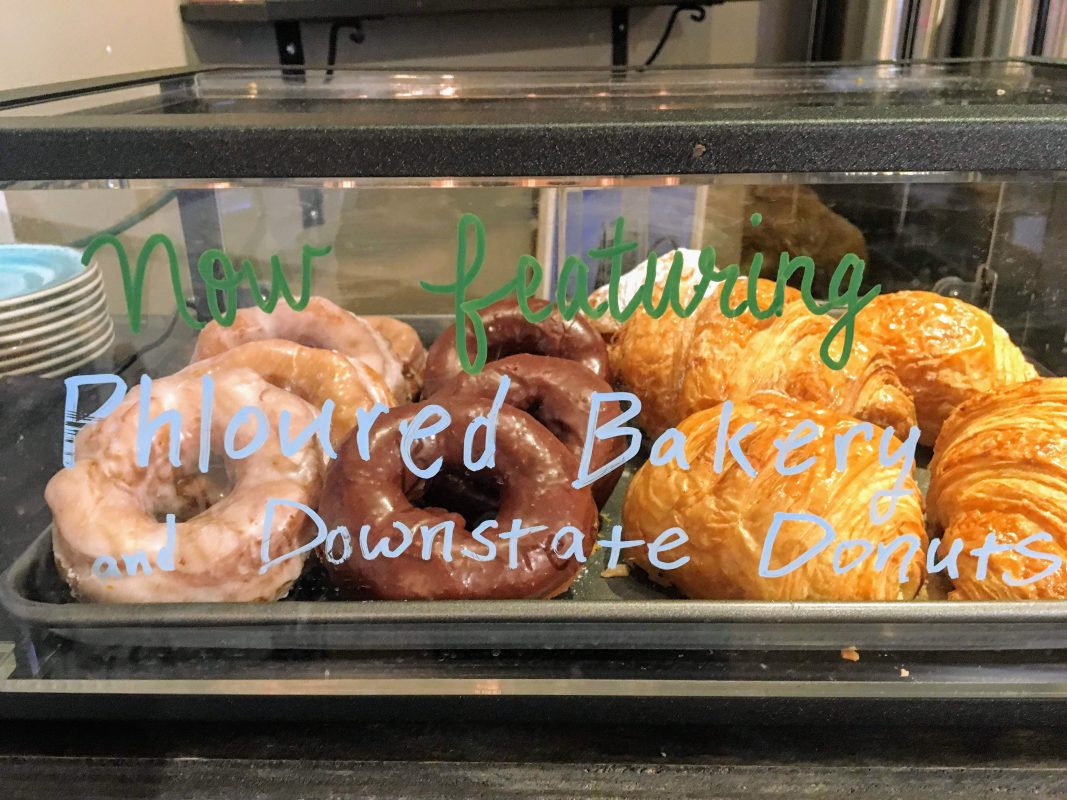 Now featuring
Phloured Bakery
and Downstate Donuts